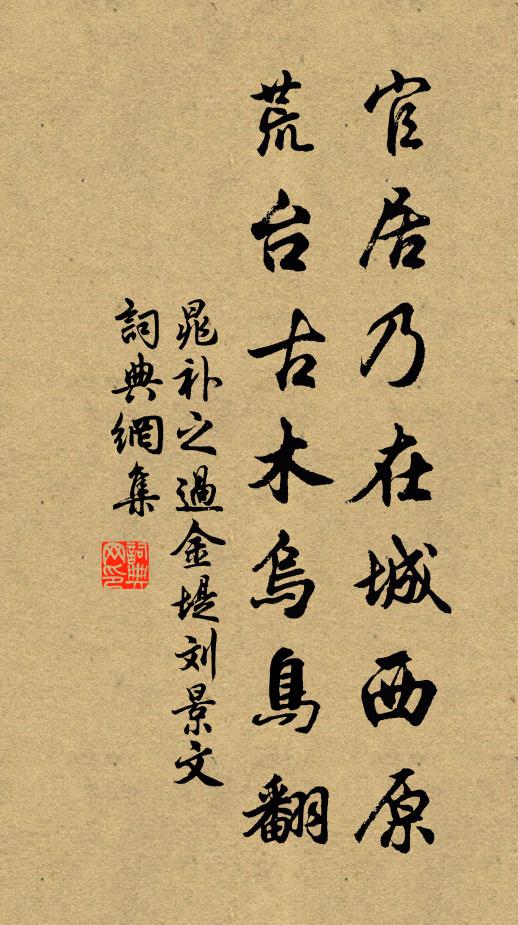 官居乃在城西原
荒台古木乌鳥翻
晁补之過金堤刘景文
詞典網集
詞典網印